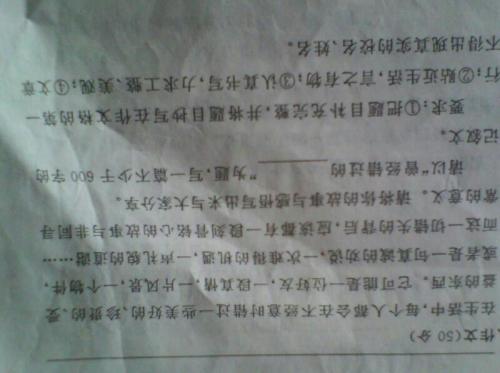 作文(50分)
在生活中,每个人都会在不经意时错过一些美好的、珍贵的、爱
的东西。它可能是一位好友,一段真情,一片风景,一个物件,
或者是一句真诚的劝说,一次难得的机遇,一声礼貌的道谢……
而这一切错失的背后,应该都有一段刻骨铭心的故事与非同寻
常的意义。请将你的故事与感悟写出来与大家分享。
请以“曾经错过的________”为题,写一篇不少于600字的
记叙文。
要求:①把题目补充完整,并将题目抄写在作文格的第一
行;②贴近生活,言之有物;③认真书写,力求工整、美观;④文章
不得出现真实的校名、姓名。